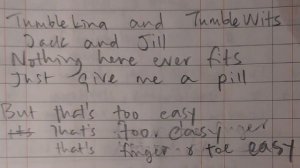 TumbleLina and TumbleWits
Jack and Jill
Nothing here ever fits
Just give me a pill
But that's too easy
that's too easy
that's finger & toe easy